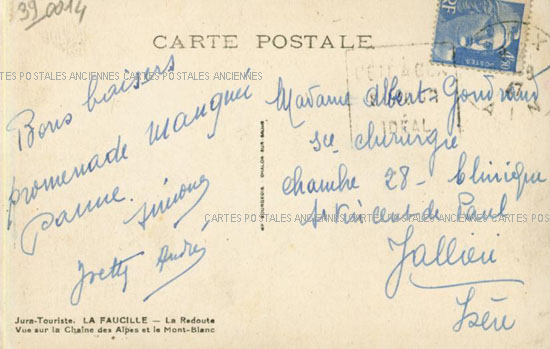 39 0014
CARTE POSTALE
Bons baisers
promenade manquee
panne. Simone
Yvette André
Madame Albert Gondrand
sce chirurgie
chambre 28 - Clinique
St Vincent de Paul
Jallieu
Isère
IDÉAL
47
CARTES POSTALES ANCIENNES CARTES POSTALES ANCIENNES CARTES POSTALES ANCIENNES
CARTES POSTALES ANCIENNES CARTES POSTALES ANCIENNES CARTES POSTALES ANCIENNES
Jura-Touriste. LA FAUCILLE — La Redoute
Vue sur la Chaîne des Alpes et le Mont-Blanc